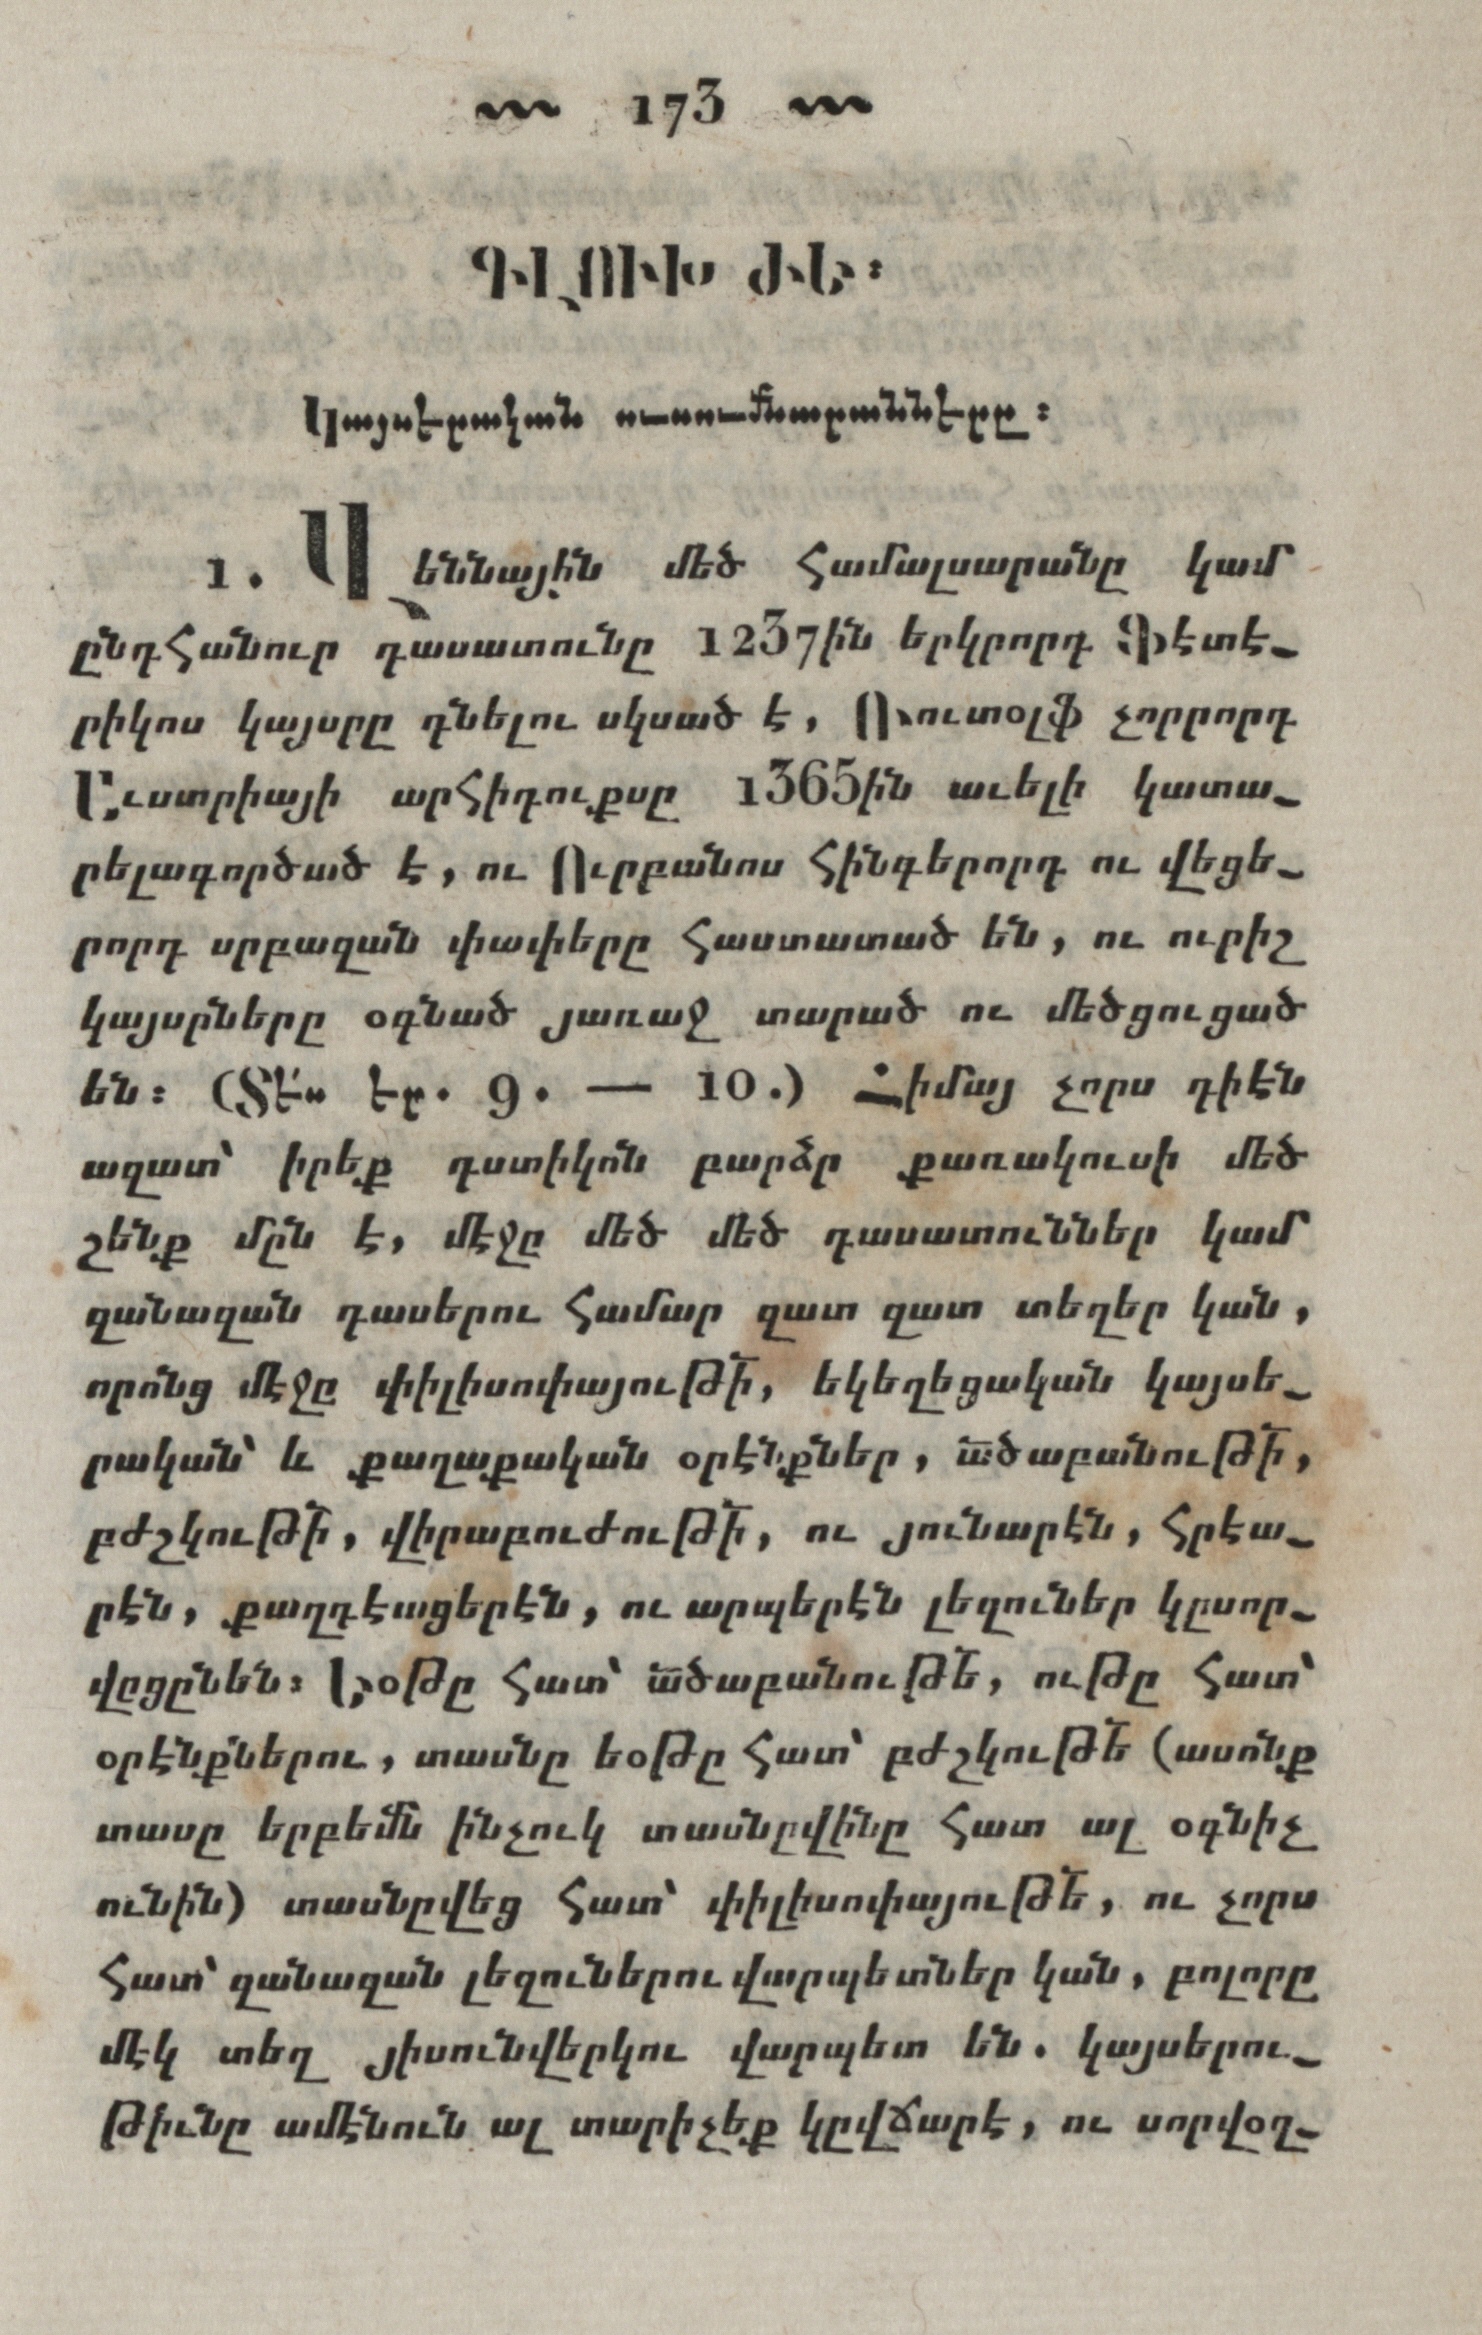 173
ԳԼՈՒԽ ԺԵ։
Կայսերական ուսումնարանները։
1. Վ եննային մեծ համալսարանը կամ
ընդհանուր դասատունը 1237ին երկրորդ Ֆէտէ-
րիկոս կայսրը դնելու սկսած է, Ռուտօլֆ չորրորդ
Աւստրիայի արհիդուքսը 1365ին աւելի կատա-
րելագործած է, ու Ուրբանոս հինգերորդ ու վեցե-
րորդ սրբազան փափերը հաստատած են, ու ուրիշ
կայսրները օգնած յառաջ տարած ու մեծցուցած
են։ (Տե՛ս եր. 9. — 10.) Հիմայ չորս դիէն
ազատ՝ իրեք դստիկոն բարձր քառակուսի մեծ
շենք մըն է, մէջը մեծ մեծ դասատուններ կամ
զանազան դասերու համար զատ զատ տեղեր կան,
որոնց մէջը փիլիսոփայութի՛, եկեղեցական կայսե-
րական՝ և քաղաքական օրէնքներ, ա՟ծաբանութի՟,
բժշկութի՟, վիրաբուժութի՟, ու յունարէն, հրէա-
րէն, քաղդէացերէն, ու արպերէն լեզուներ կըսոր-
վըցընեն։ Եօթը հատ՝ ա՟ծաբանութե՟, ութը հատ՝
օրէնքներու, տասնը եօթը հատ՝ բժշկութե՟ (ասոնք
տասը երբեմն ինչուկ տասնըվինը հատ ալ օգնիչ
ունին) տասնըվեց հատ՝ փիլիսոփայութե՟, ու չորս
հատ՝ զանազան լեզուներու վարպետներ կան, բոլորը
մէկ տեղ յիսունվերկու վարպետ են. կայսերու-
թիւնը ամէնուն ալ տարիչեք կըվճարէ, ու սորվօղ-